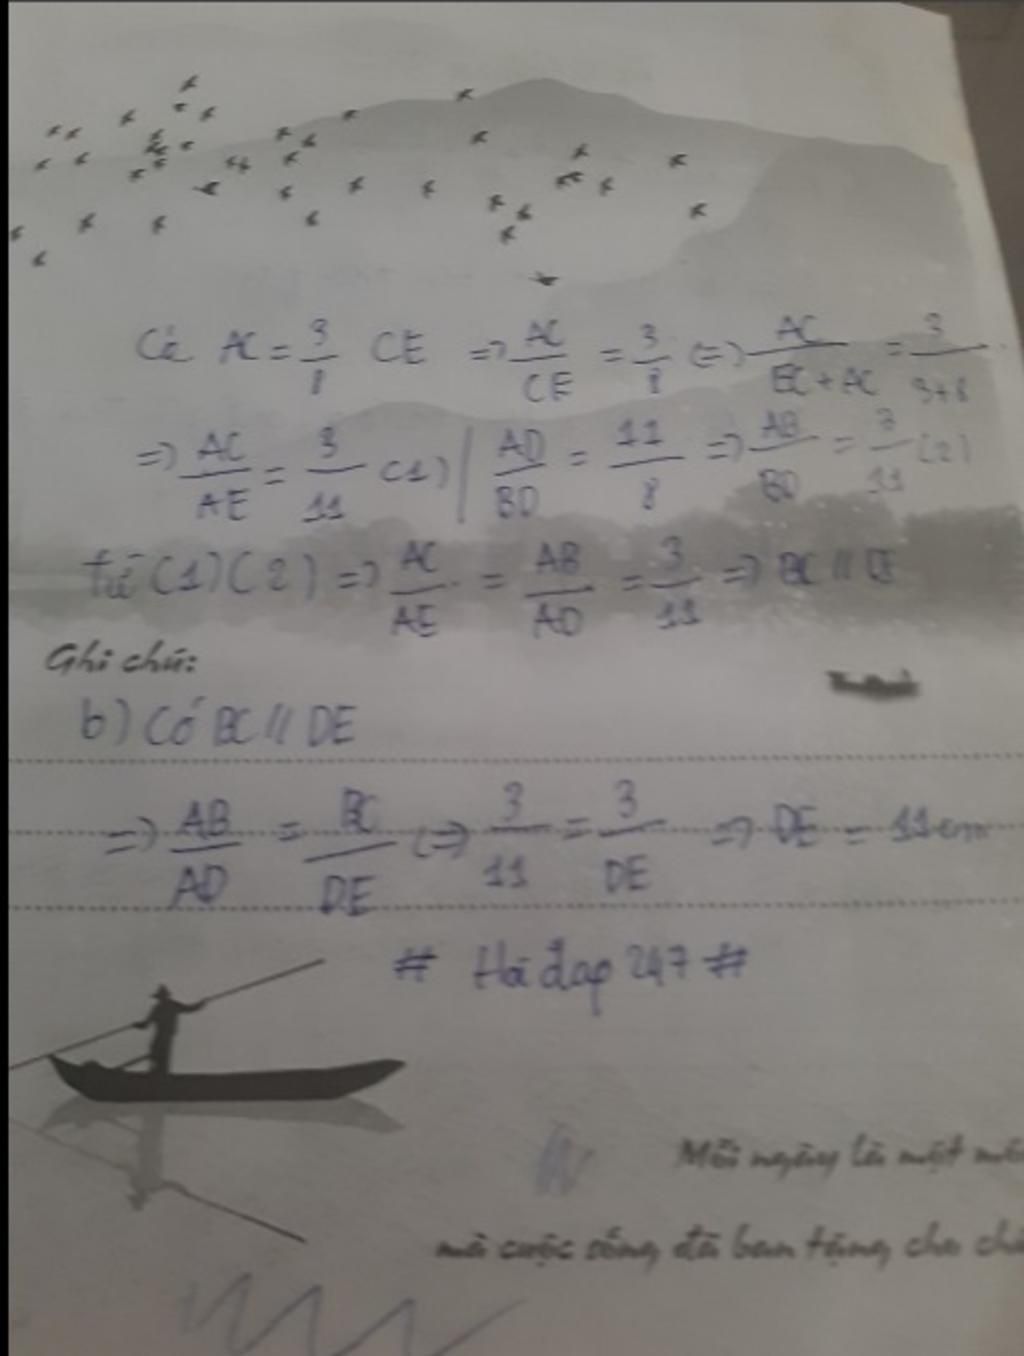 Có AC = 3/8 CE => AC/CE = 3/8 (=>) AC/EC + AC = 3/3+8
=> AC/AE = 3/11 (1) | AD/BD = 11/8 => AB/BD = 3/11 (2)
Từ (1) (2) => AC/AE = AB/AD = 3/11 => BC // DE
Ghi chú:
b) Có BC // DE
=> AB/AD = BC/DE (=> 3/11 = 3/DE => DE = 11 cm
# Hỏi đáp 247 #
Mỗi ngày là một
mà cuộc sống đã ban tặng cho